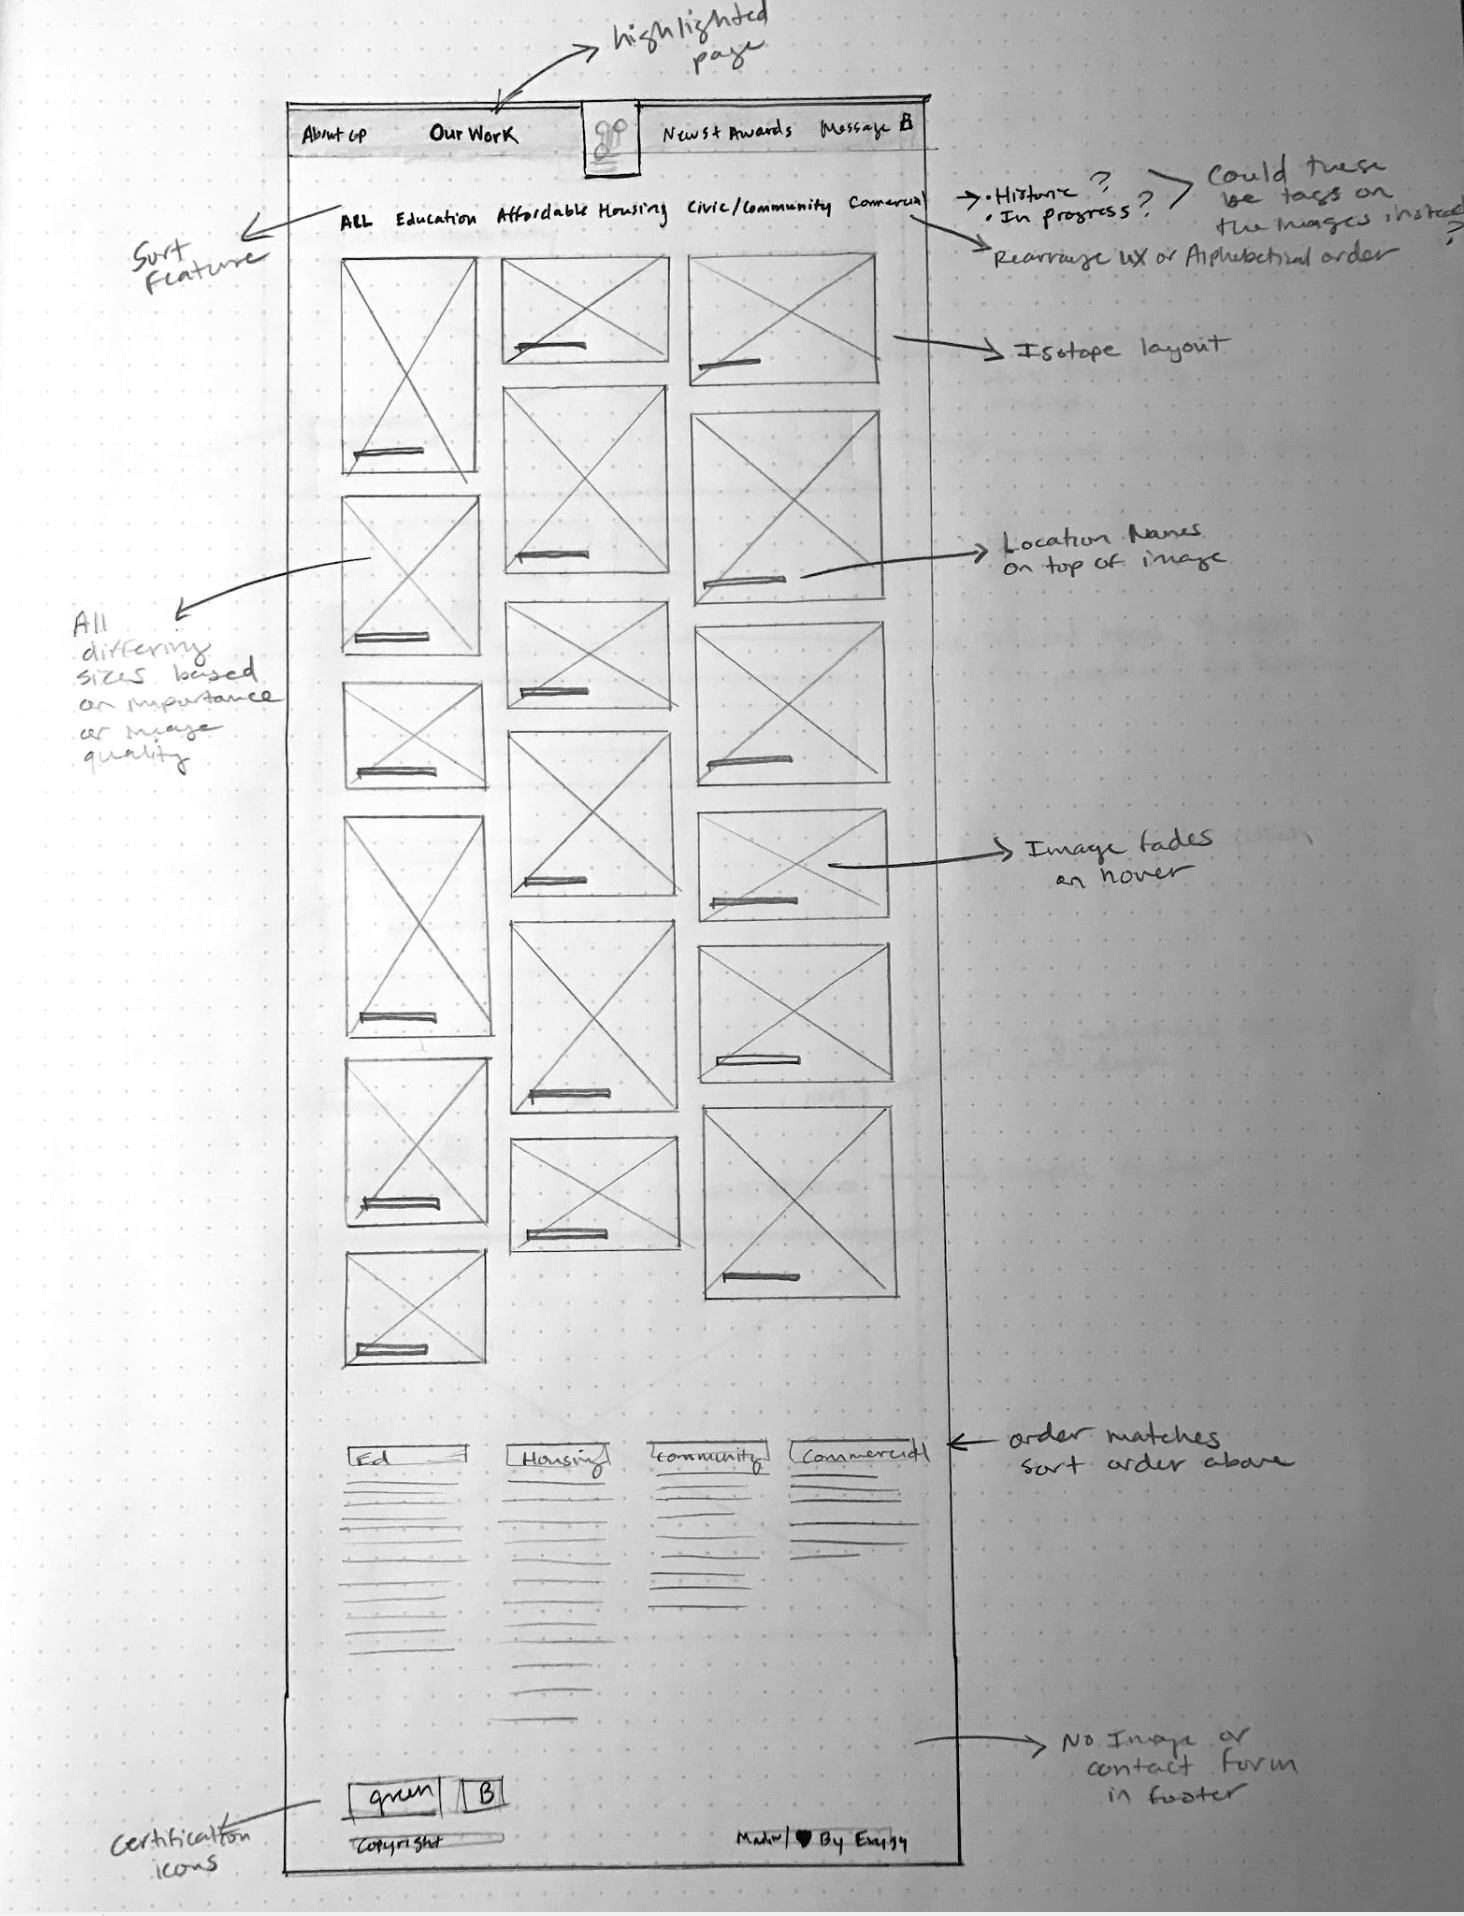 highlighted
page
About Up
Our Work
News + Awards
Message
Sort
feature
ALL Education Affordable Housing Civic/Community Commercial
• Historic ?
• In progress ?
Could these
be tags on
the images instead
?
Rearrange UX or Alphabetical order
Isotope layout
Location Names
on top of image
All
differing
sizes based
on importance
or image
quality
Image fades
on hover
Ed
Housing
Community
Commercial
order matches
sort order above
No Image or
contact form
in footer
green
B
Certification
icons
Copyright
Made w/ ♥ By Exygy